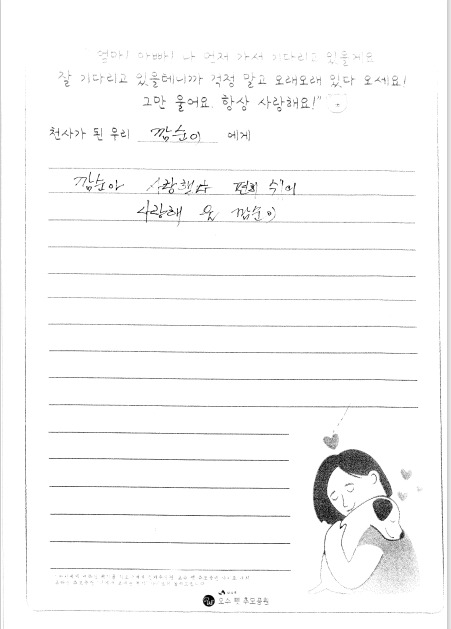 엄마! 아빠! 나 먼저 가서 기다리고 있을게요
잘 기다리고 있을테니까 걱정 말고 오래오래 있다 오세요!
그만 울어요. 항상 사랑해요!"
천사가 된 우리 깜순이 에게
깜순아 사랑했다 편히 쉬어
사랑해 깜순이
펫 추모공원